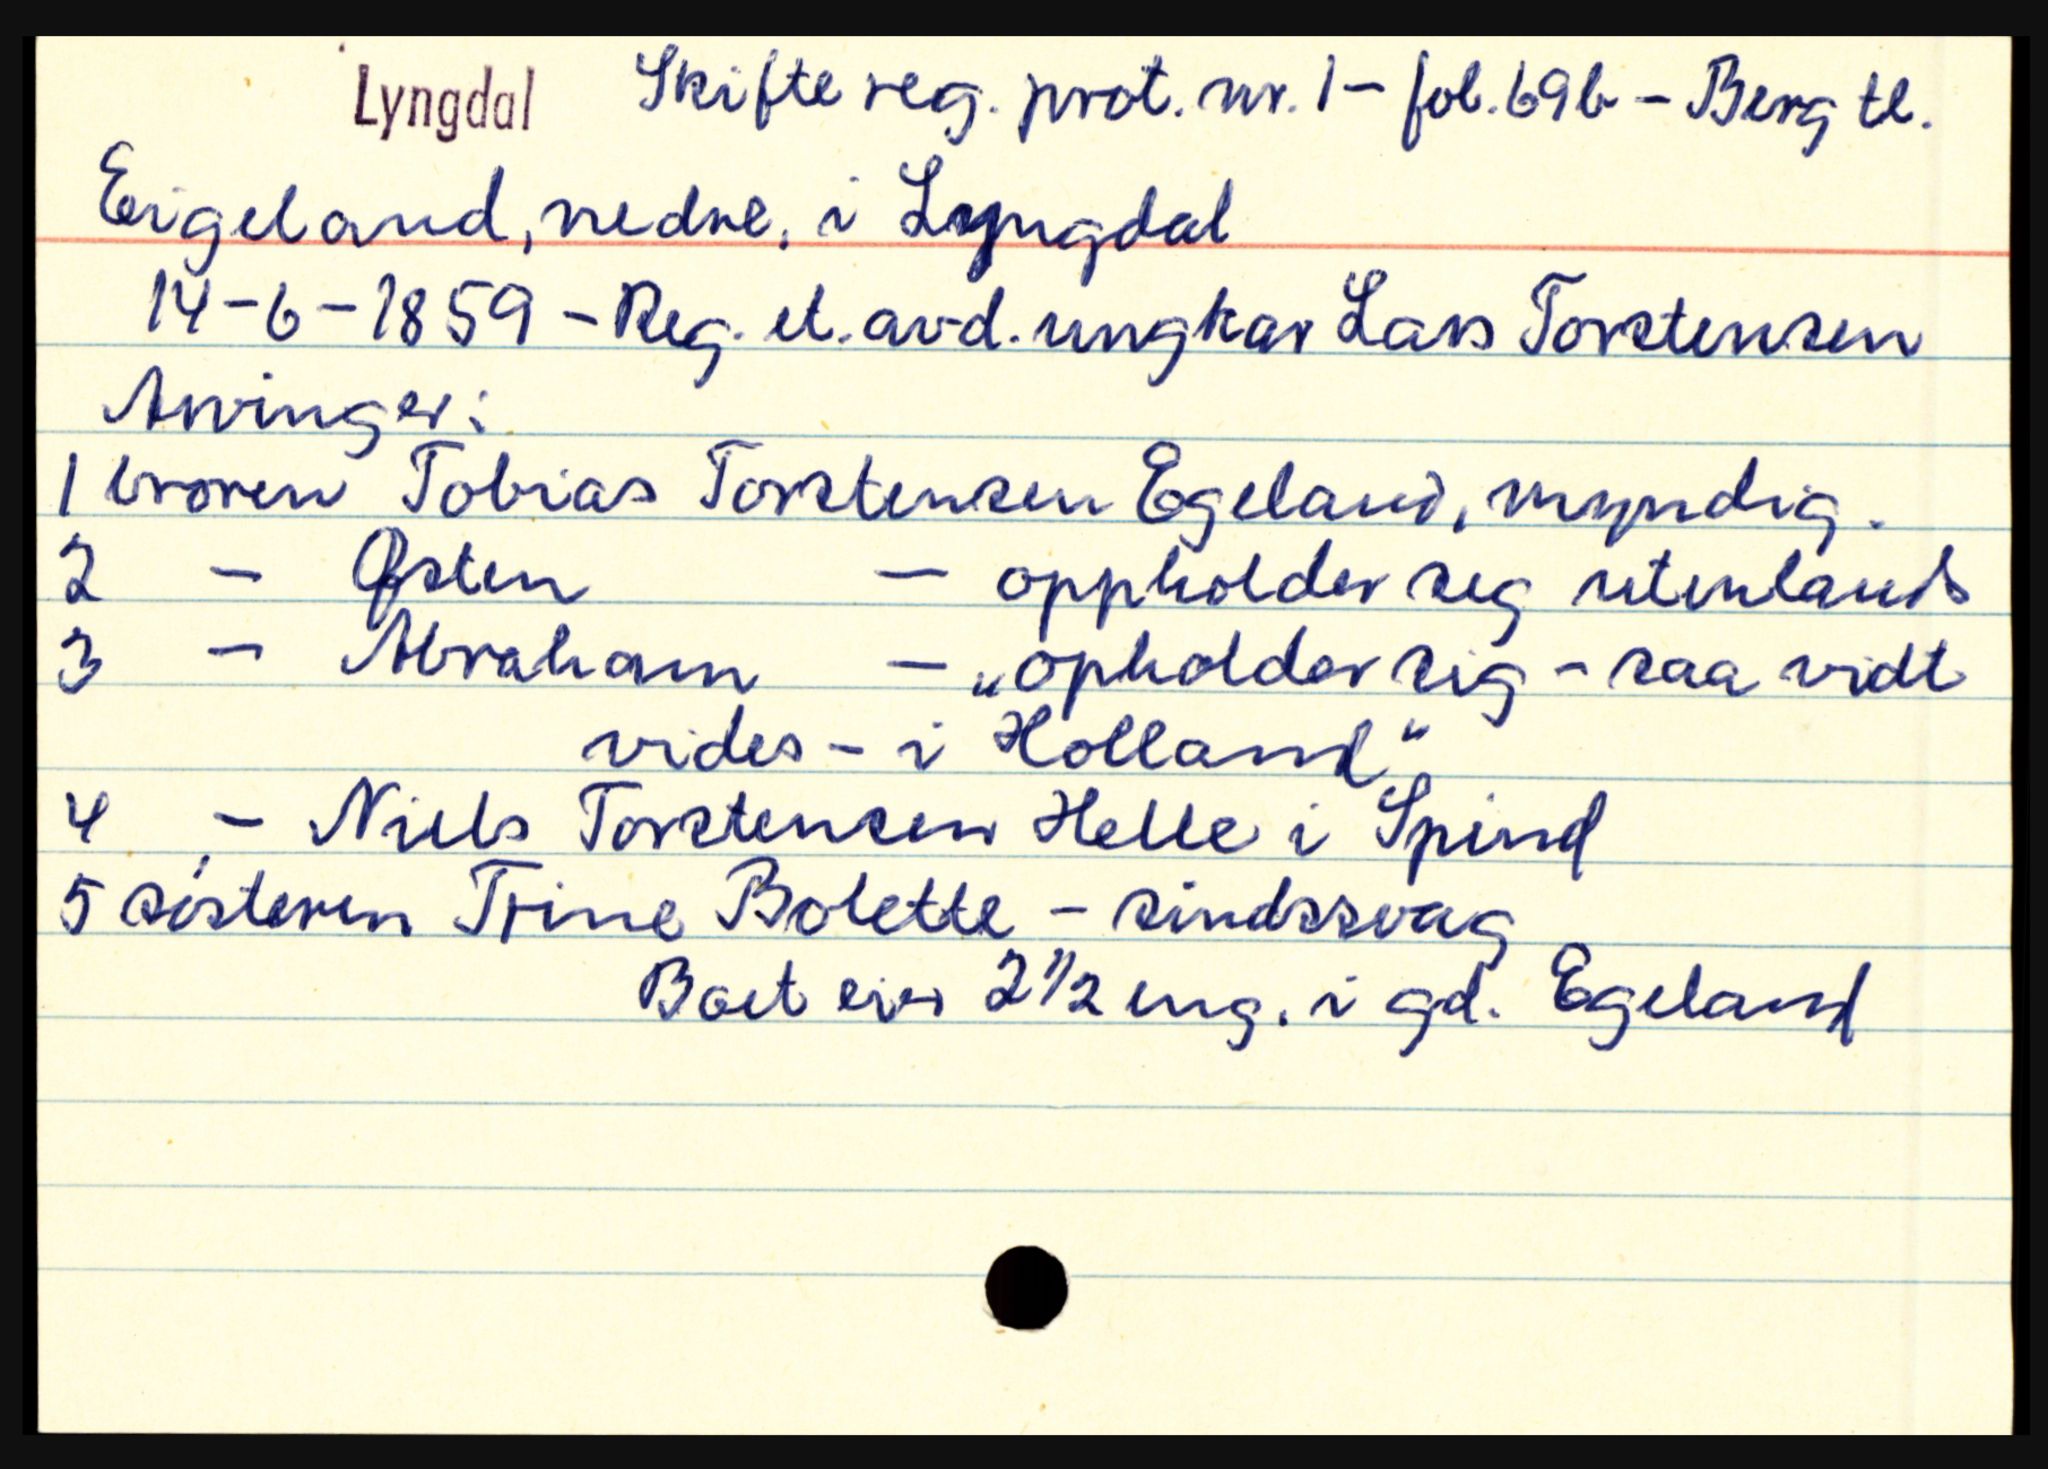 Lyngdal Skifte reg. prot. nr. 1 - fol. 69b - Berg tl.
Eigeland, nedre, i Lyngdal
14-6-1859 - Reg. et. avd. ungkar Lars Torstensen
Arvinger:
1 broren Tobias Torstensen Egeland, myndig.
2 - Østen - oppholder seg utenlands
3 - Abraham - „opholder sig - saa vidt
vides - i Holland"
4 - Niels Torstensen Helle i Spind
5 søsteren Trine Bolette - sindssvag
Boet eier 2 1/2 eng. i gd. Egeland